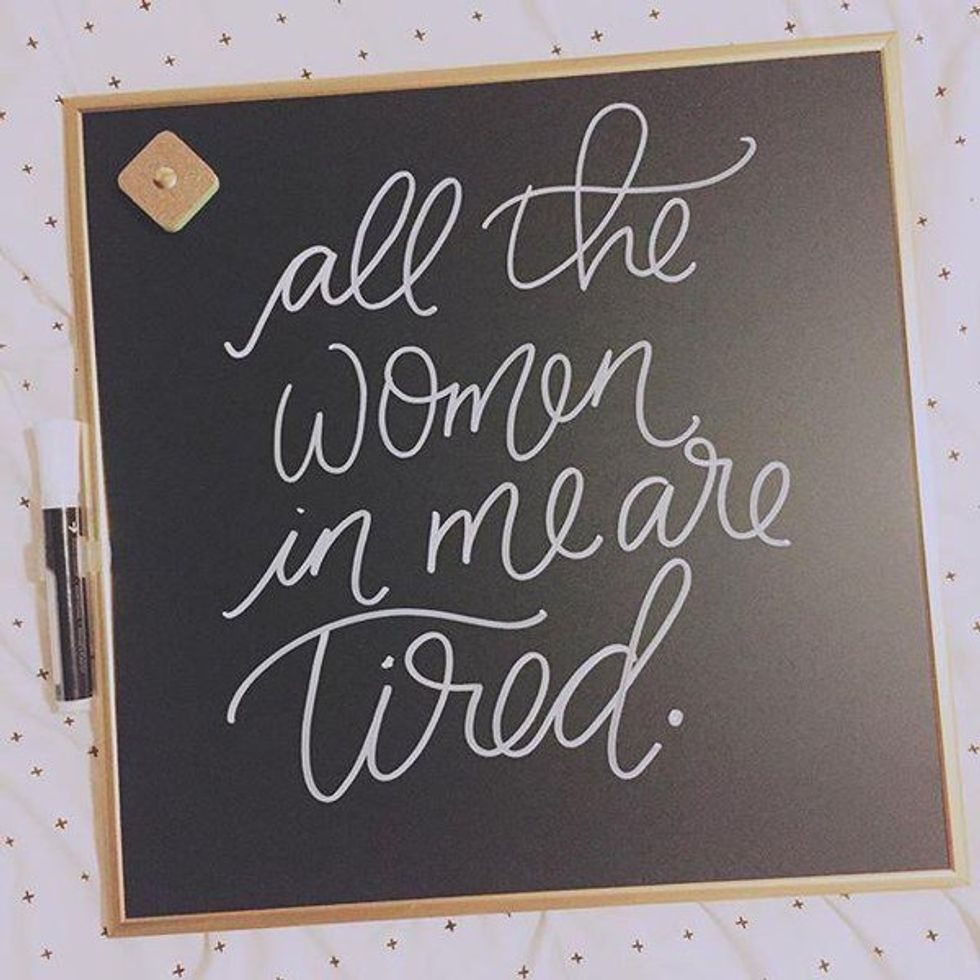 all the
women
in me are
Tired.